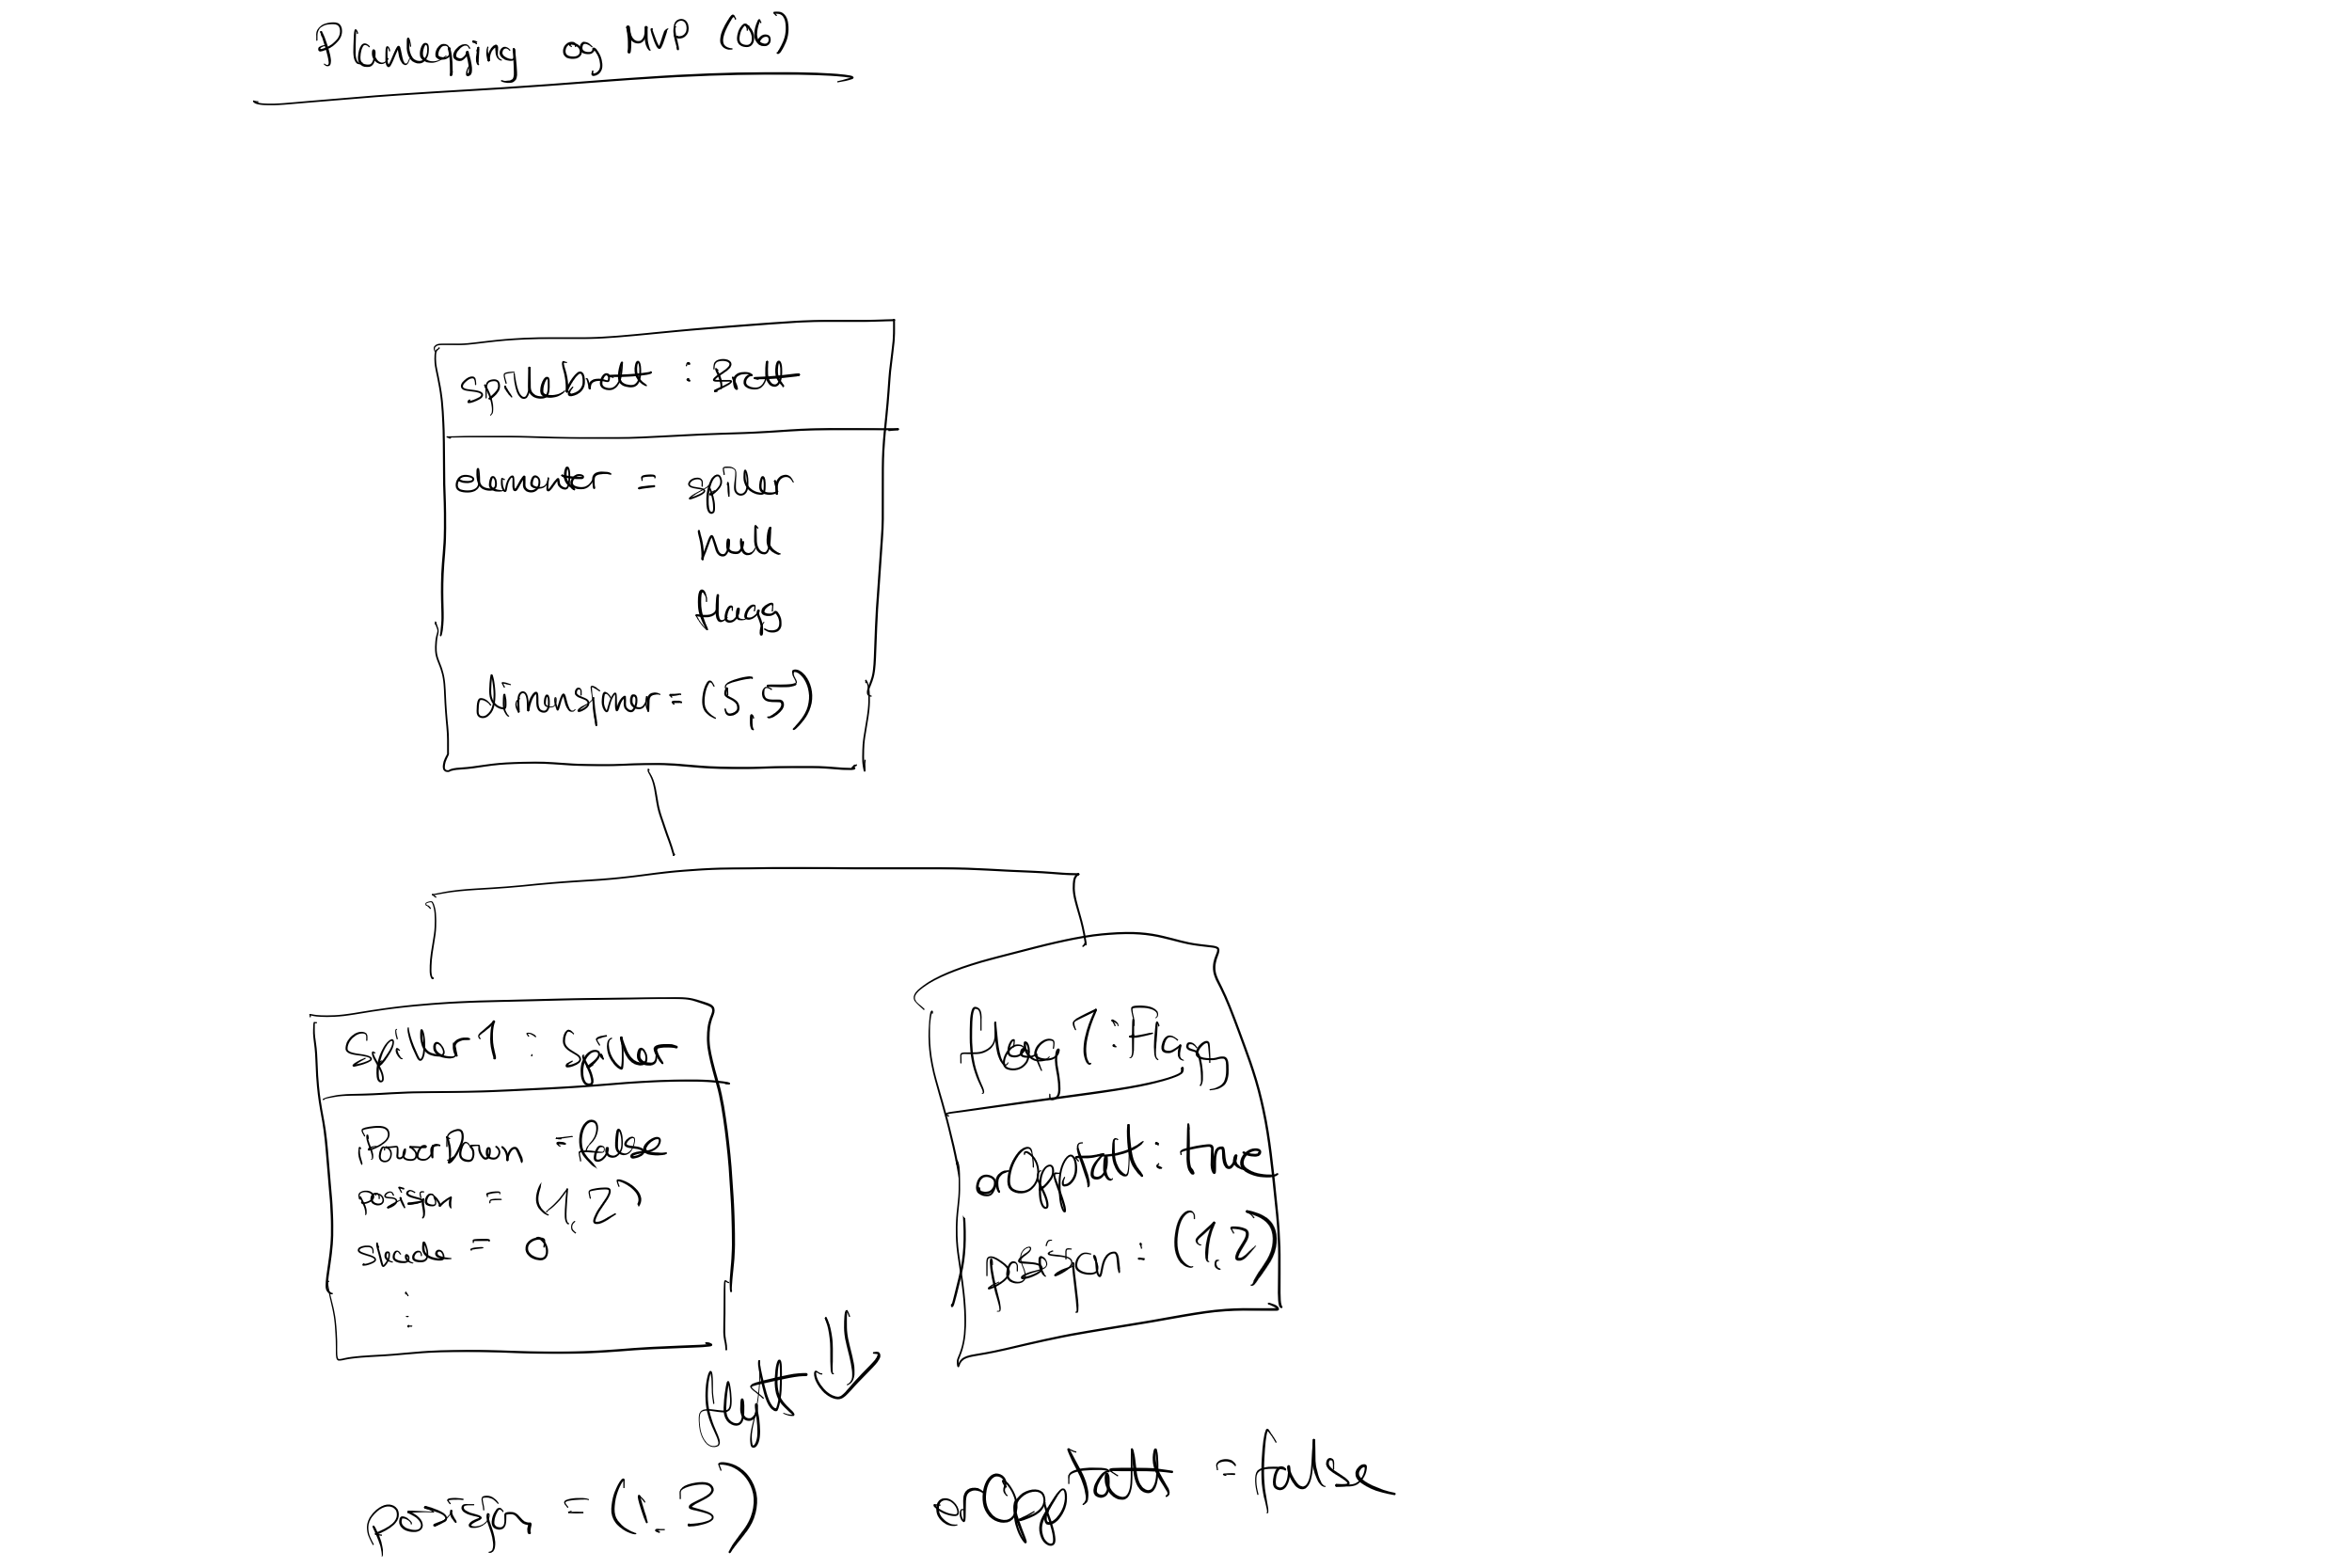 Planlegging og MVP (OO)
spillebrett : Brett
elementer = spiller
Null
flagg
dimensjoner = (5,5)
Spiller1 : Spiller
flagg1 : Flagg
PowerDown = false
posisjon = (1,2)
skade = 0
:
erOpptatt : true
posisjon : (1,2)
flytt
posisjon = (1,3)
erOpptatt = false